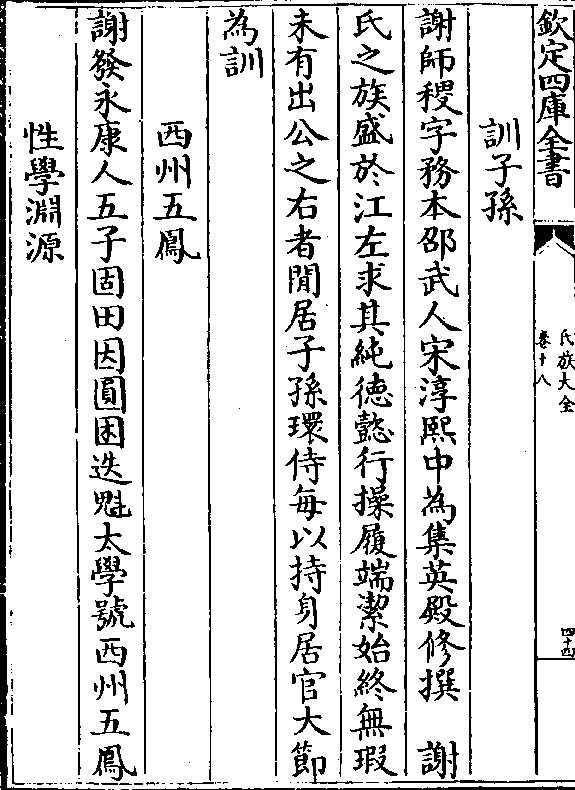 欽定四庫全書
氏族大全
卷十八
四十四
訓子孫
謝師稷字務本邵武人宋淳熙中為集英殿修撰　謝
氏之族盛於江左求其純徳懿行操履端潔始終無瑕
未有出公之右者閒居子孫環侍每以持身居官大節
為訓
西州五鳳
謝發永康人五子固田因圓困迭魁太學號西州五鳳
性學淵源